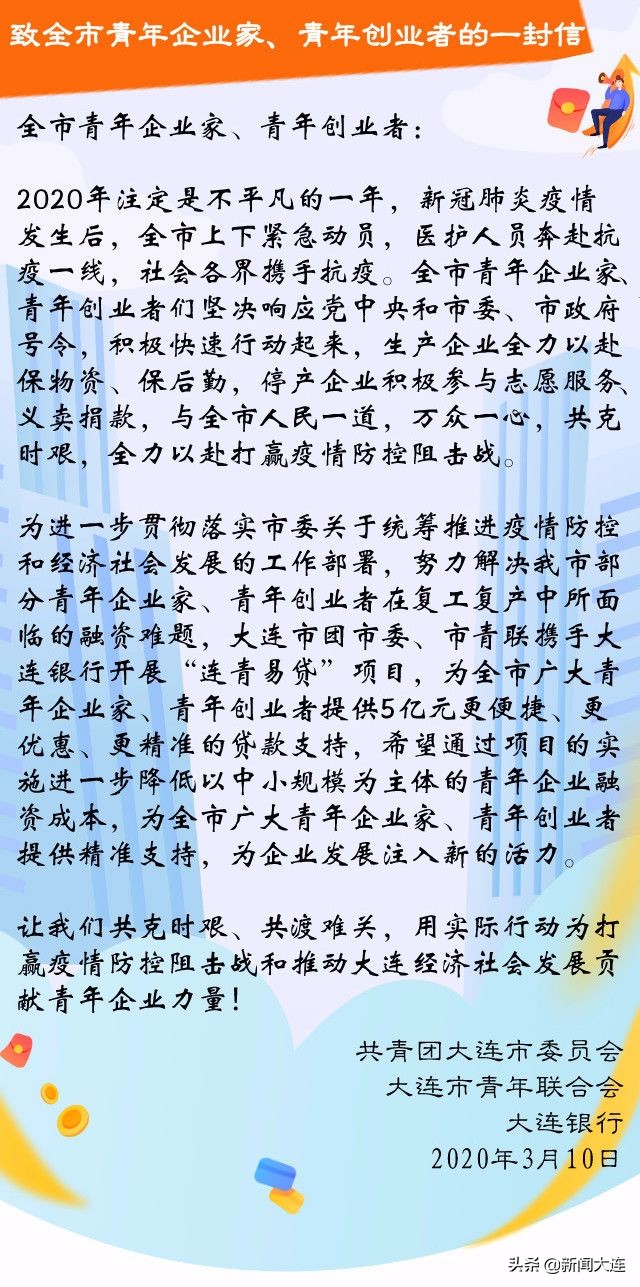 致全市青年企业家、青年创业者的一封信
全市青年企业家、青年创业者：
2020年注定是不平凡的一年，新冠肺炎疫情
发生后，全市上下紧急动员，医护人员奔赴抗
疫一线，社会各界携手抗疫。全市青年企业家、
青年创业者们坚决响应党中央和市委、市政府
号令，积极快速行动起来，生产企业全力以赴
保物资、保后勤，停产企业积极参与志愿服务、
义卖捐款，与全市人民一道，万众一心，共克
时艰，全力以赴打赢疫情防控阻击战。
为进一步贯彻落实市委关于统筹推进疫情防控
和经济社会发展的工作部署，努力解决我市部
分青年企业家、青年创业者在复工复产中所面
临的融资难题，大连市团市委、市青联携手大
连银行开展“连青易贷”项目，为全市广大青
年企业家、青年创业者提供5亿元更便捷、更
优惠、更精准的贷款支持，希望通过项目的实
施进一步降低以中小规模为主体的青年企业融
资成本，为全市广大青年企业家、青年创业者
提供精准支持，为企业发展注入新的活力。
让我们共克时艰、共渡难关，用实际行动为打
赢疫情防控阻击战和推动大连经济社会发展贡
献青年企业力量！
共青团大连市委员会
大连市青年联合会
大连银行
2020年3月10日
头条 @新闻大连